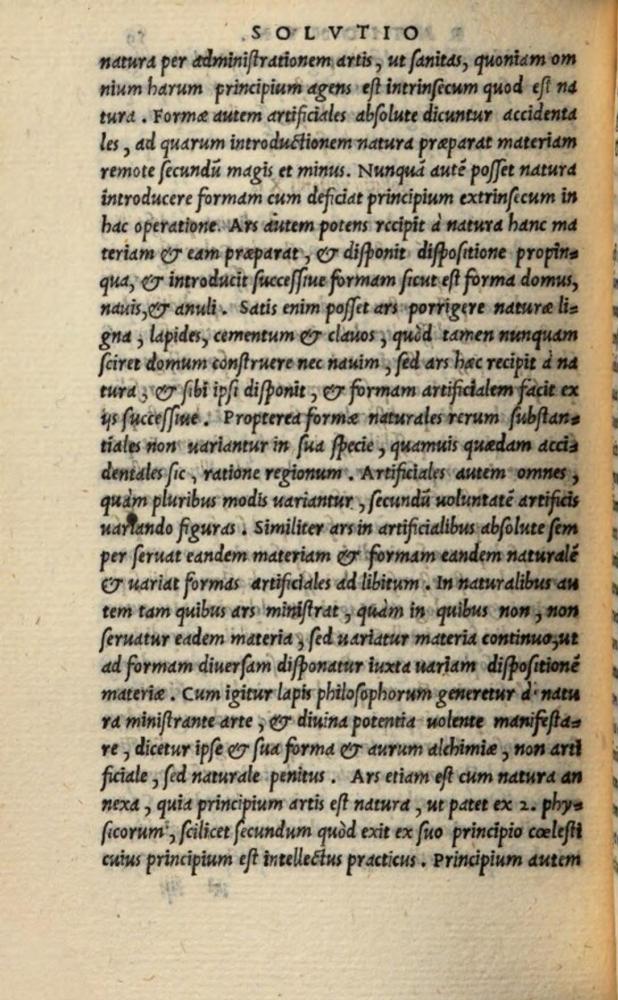 SOLVTIO
natura per adminiſtrationem artis, ut ſanitas, quoniam om
nium harum principium agens eſt intrinſecum quod eſt na
tura. Formæ autem artificiales abſolute dicuntur accidenta
les, ad quarum introductionem natura præparat materiam
remote ſecundũ magis et minus. Nunquã autẽ poſſet natura
introducere formam cum deficiat principium extrinſecum in
hac operatione. Ars autem potens recipit à natura hanc ma
teriam & eam præparat, & diſponit diſpoſitione propin=
qua, & introducit ſucceſſiue formam ſicut eſt forma domus,
nauis, & anuli. Satis enim poſſet ars porrigere naturæ li=
gna, lapides, cementum & clauos, quòd tamen nunquam
ſciret domum conſtruere nec nauim, ſed ars hæc recipit à na
tura, & ſibi ipſi diſponit, & formam artificialem facit ex
ijs ſucceſſiue. Propterea formæ naturales rerum ſubſtan=
tiales non uariantur in ſua ſpecie, quamuis quædam acci=
dentales ſic, ratione regionum. Artificiales autem omnes,
quàm pluribus modis uariantur, ſecundũ uoluntatẽ artificis
uariando figuras. Similiter ars in artificialibus abſolute ſem
per ſeruat eandem materiam & formam eandem naturalẽ
& uariat formas artificiales ad libitum. In naturalibus au
tem tam quibus ars miniſtrat, quàm in quibus non, non
ſeruatur eadem materia, ſed uariatur materia continuo, ut
ad formam diuerſam diſponatur iuxta uariam diſpoſitionẽ
materiæ. Cum igitur lapis philoſophorum generetur à natu
ra miniſtrante arte, & diuina potentia uolente manifeſta=
re, dicetur ipſe & ſua forma & aurum alchimiæ, non arti
ficiale, ſed naturale penitus. Ars etiam eſt cum natura an
nexa, quia principium artis eſt natura, ut patet ex 2. phy=
ſicorum, ſcilicet ſecundum quòd exit ex ſuo principio cœleſti
cuius principium eſt intellectus practicus. Principium autem